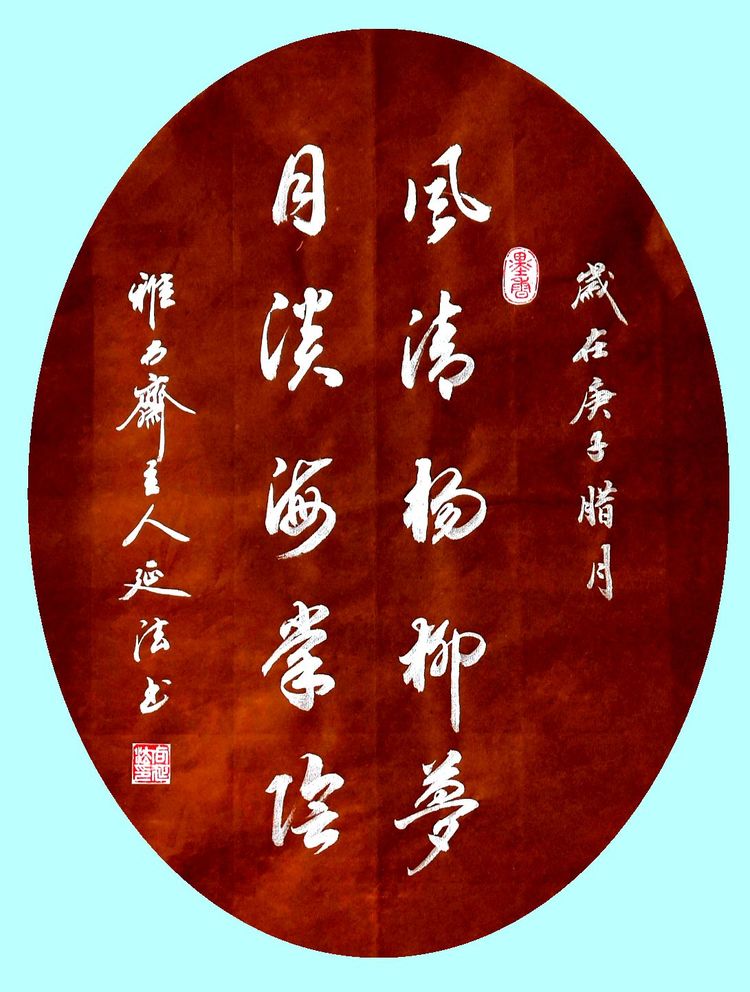 歲在庚子腊月
風清杨柳夢
月淡海棠陰
雅齋主人延法书